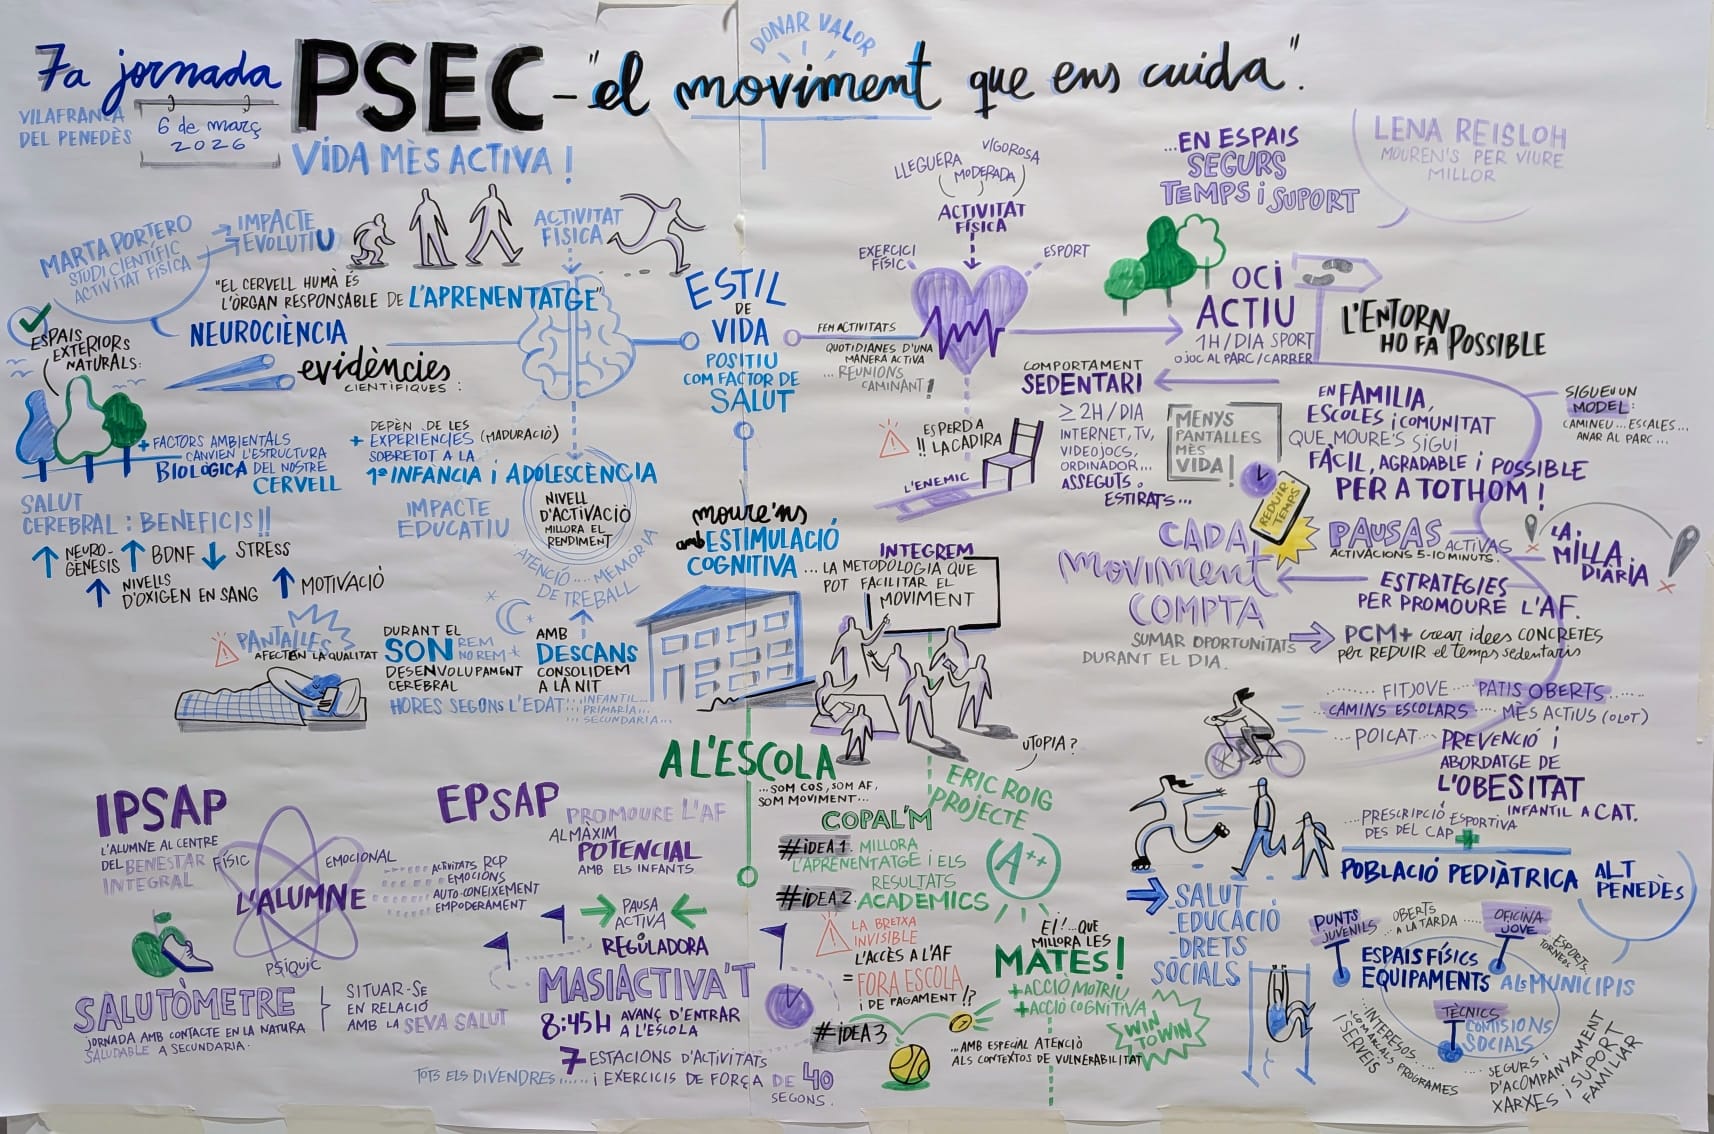 7a jornada PSEC - "el moviment que ens cuida".
DONAR VALOR
VILAFRANCA
DEL PENEDÈS
6 de març
2026
VIDA MÈS ACTIVA!
MARTA PORTERO
STUDI CIENTÍFIC
ACTIVITAT FÍSICA
IMPACTE
EVOLUTIU
ACTIVITAT
FÍSICA
"EL CERVELL HUMÀ ÉS
L'ÒRGAN RESPONSABLE DE L'APRENENTATGE"
NEUROCIÈNCIA
evidències
CIENTÍFIQUES:
ESPAIS
EXTERIORS
NATURALS:
+ FACTORS AMBIENTALS
CANVIEN L'ESTRUCTURA
BIOLÒGICA DEL NOSTRE
CERVELL
+ DEPÈN DE LES
EXPERIÈNCIES (MADURACIÓ)
SOBRETOT A LA
1ª INFÀNCIA i ADOLESCÈNCIA
SALUT
CEREBRAL: BENEFICIS!!
NEURO-
GÈNESIS
BDNF
STRESS
NIVELLS
D'OXIGEN EN SANG
MOTIVACIÓ
IMPACTE
EDUCATIU
NIVELL
D'ACTIVACIÓ
MILLORA EL
RENDIMENT
ATENCIÓ.... MEMÒRIA
DE TREBALL
PANTALLES
AFECTEN LA QUALITAT
DURANT EL
SON REM
NO REM
DESENVOLUPAMENT
CEREBRAL
AMB
DESCANS
CONSOLIDEM
A LA NIT
HORES SEGONS L'EDAT: INFANTIL...
PRIMÀRIA...
SECUNDÀRIA...
ESTIL
DE
VIDA
POSITIU
COM FACTOR DE
SALUT
moure'ns
amb ESTIMULACIÓ
COGNITIVA
INTEGREM
... LA METODOLOGIA QUE
POT FACILITAR EL
MOVIMENT
LLEGUERA
MODERADA
VIGOROSA
ACTIVITAT
FÍSICA
EXERCICI
FÍSIC
ESPORT
FEM ACTIVITATS
QUOTIDIANES D'UNA
MANERA ACTIVA
... REUNIONS
CAMINANT!
ES PERD A
!! LA CADIRA
L'ENEMIC
COMPORTAMENT
SEDENTARI
≥ 2H/DIA
INTERNET, TV,
VIDEOJOCS,
ORDINADOR...
ASSEGUTS O
ESTIRATS...
MENYS
PANTALLES
MÈS
VIDA!
REDUIR
TEMPS
...EN ESPAIS
SEGURS
TEMPS i SUPORT
LENA REISLOH
MOUREN'S PER VIURE
MILLOR
OCI
ACTIU
1H/DIA SPORT
O JOC AL PARC/CARRER
L'ENTORN
HO FA POSSIBLE
EN FAMILIA,
ESCOLES i COMUNITAT
QUE MOURE'S SIGUI
FÀCIL, AGRADABLE i POSSIBLE
PER A TOTHOM!
SIGUEU UN
MODEL:
CAMINEU... ESCALES...
ANAR AL PARC...
CADA
moviment
COMPTA
SUMAR OPORTUNITATS
DURANT EL DIA.
PAUSAS
ACTIVAS
ACTIVACIONS 5-10 MINUTS.
LA
MILLA
DIÀRIA
ESTRATÈGIES
PER PROMOURE L'AF.
PCM+ crear idees CONCRETES
per REDUIR el temps sedentaris
...... FITJOVE ---- PATIS OBERTS ......
CAMINS ESCOLARS ..... MÈS ACTIUS (OLOT)
.... POICAT... PREVENCIÓ i
ABORDATGE DE
L'OBESITAT
INFANTIL A CAT.
... PRESCRIPCIÓ ESPORTIVA
DES DEL CAP +
POBLACIÓ PEDIÀTRICA
ALT
PENEDÈS
SALUT
EDUCACIÓ
DRETS
SOCIALS
PUNTS
JUVENILS
OBERTS
A LA TARDA
OFICINA
JOVE
ESPORTS..
TORNEDS
ESPAIS FÍSICS
EQUIPAMENTS ALS MUNICIPIS
TÈCNICS
COMISIONS
SOCIALS
INTERESOS...
COMARCALS PROGRAMES
I SERVEIS
SEGURS i
D'ACOMPANYAMENT
XARXES i SUPORT
FAMILIAR
IPSAP
L'ALUMNE AL CENTRE
DEL BENESTAR
INTEGRAL
FÍSIC
EMOCIONAL
L'ALUMNE
PSÍQUIC
ACTIVITATS RCP
EMOCIONS
AUTO-CONEIXEMENT
EMPODERAMENT
SALUTÒMETRE
JORNADA AMB CONTACTE EN LA NATURA
SALUDABLE A SECUNDÀRIA.
SITUAR-SE
EN RELACIÓ
AMB LA SEVA SALUT
EPSAP PROMOURE L'AF
AL MÀXIM
POTENCIAL
AMB ELS INFANTS
PAUSA
ACTIVA
REGULADORA
MASIACTIVA'T
8:45H AVANÇ D'ENTRAR
A L'ESCOLA
7 ESTACIONS D'ACTIVITATS
TOTS ELS DIVENDRES ..... i EXERCICIS DE FORÇA DE 40
SEGONS.
A L'ESCOLA
...SOM COS, SOM AF,
SOM MOVIMENT...
UTOPIA?
ERIC ROIG
PROJECTE
COPAL'M
#IDEA1. MILLORA
L'APRENENTATGE i ELS
RESULTATS
#IDEA2. ACADEMICS
A++
LA BRETXA
INVISIBLE
L'ACCÈS A L'AF
= FORA ESCOLA
i DE PAGAMENT!?
#IDEA3
EI!...QUE
MILLORA LES
MATES!
+ ACCIÓ MOTRIU
+ ACCIÓ COGNITIVA
WIN
TO WIN
...AMB ESPECIAL ATENCIÓ
ALS CONTEXTOS DE VULNERABILITAT